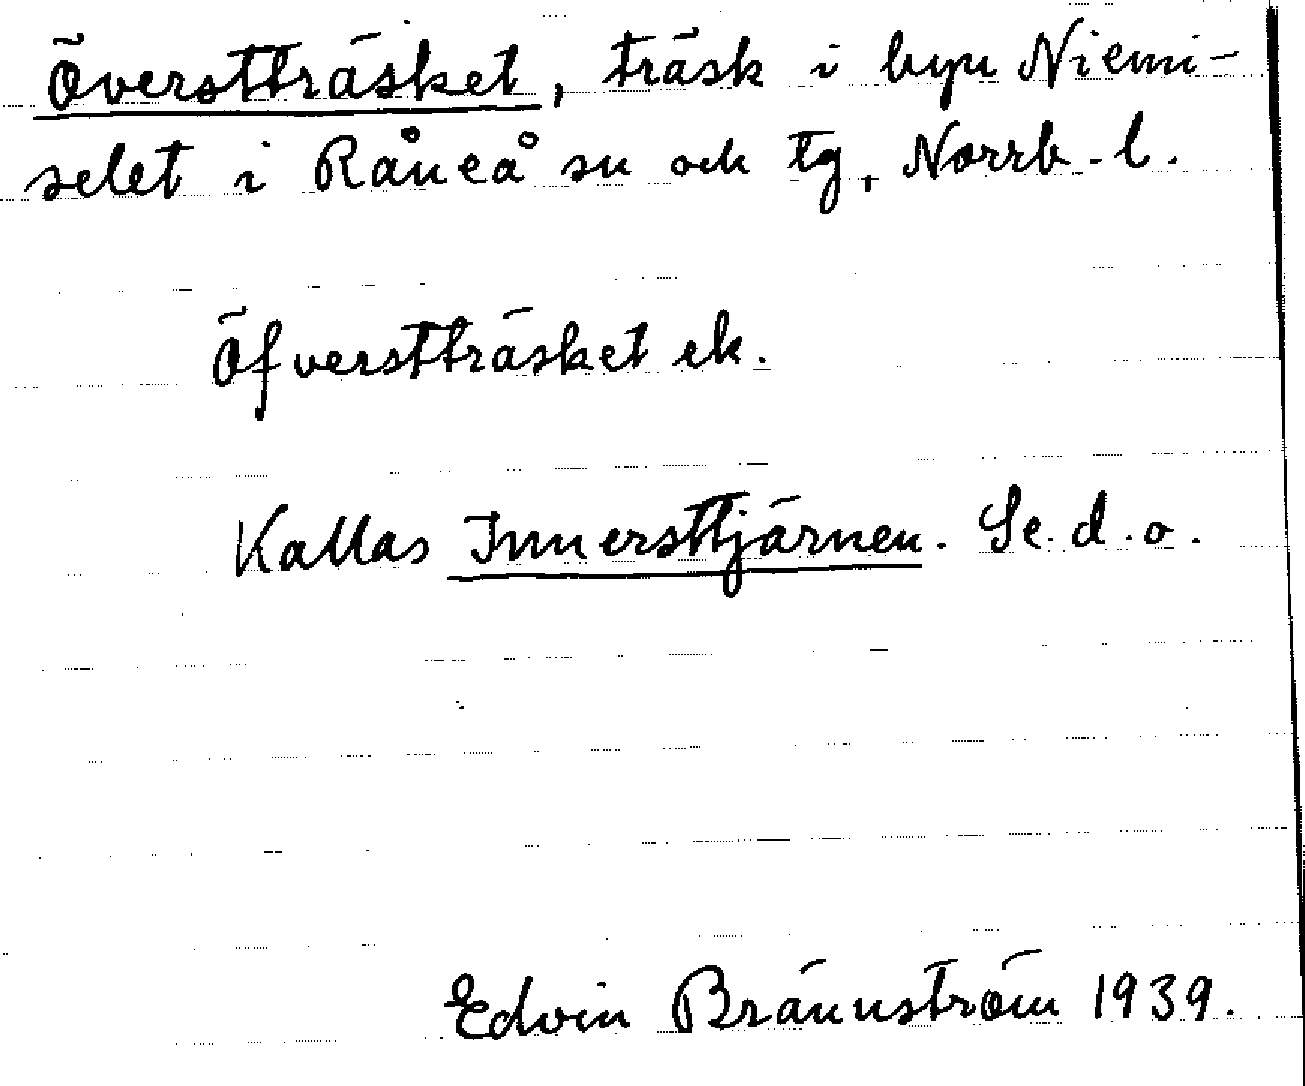 Överstträsket, träsk i byn Niemi-
selet i Råneå sn och tg, Norrb. l.
Öfverstträsket ek.
Kallas Innersttjärnen. Se. d. o.
Edvin Brännström 1939.